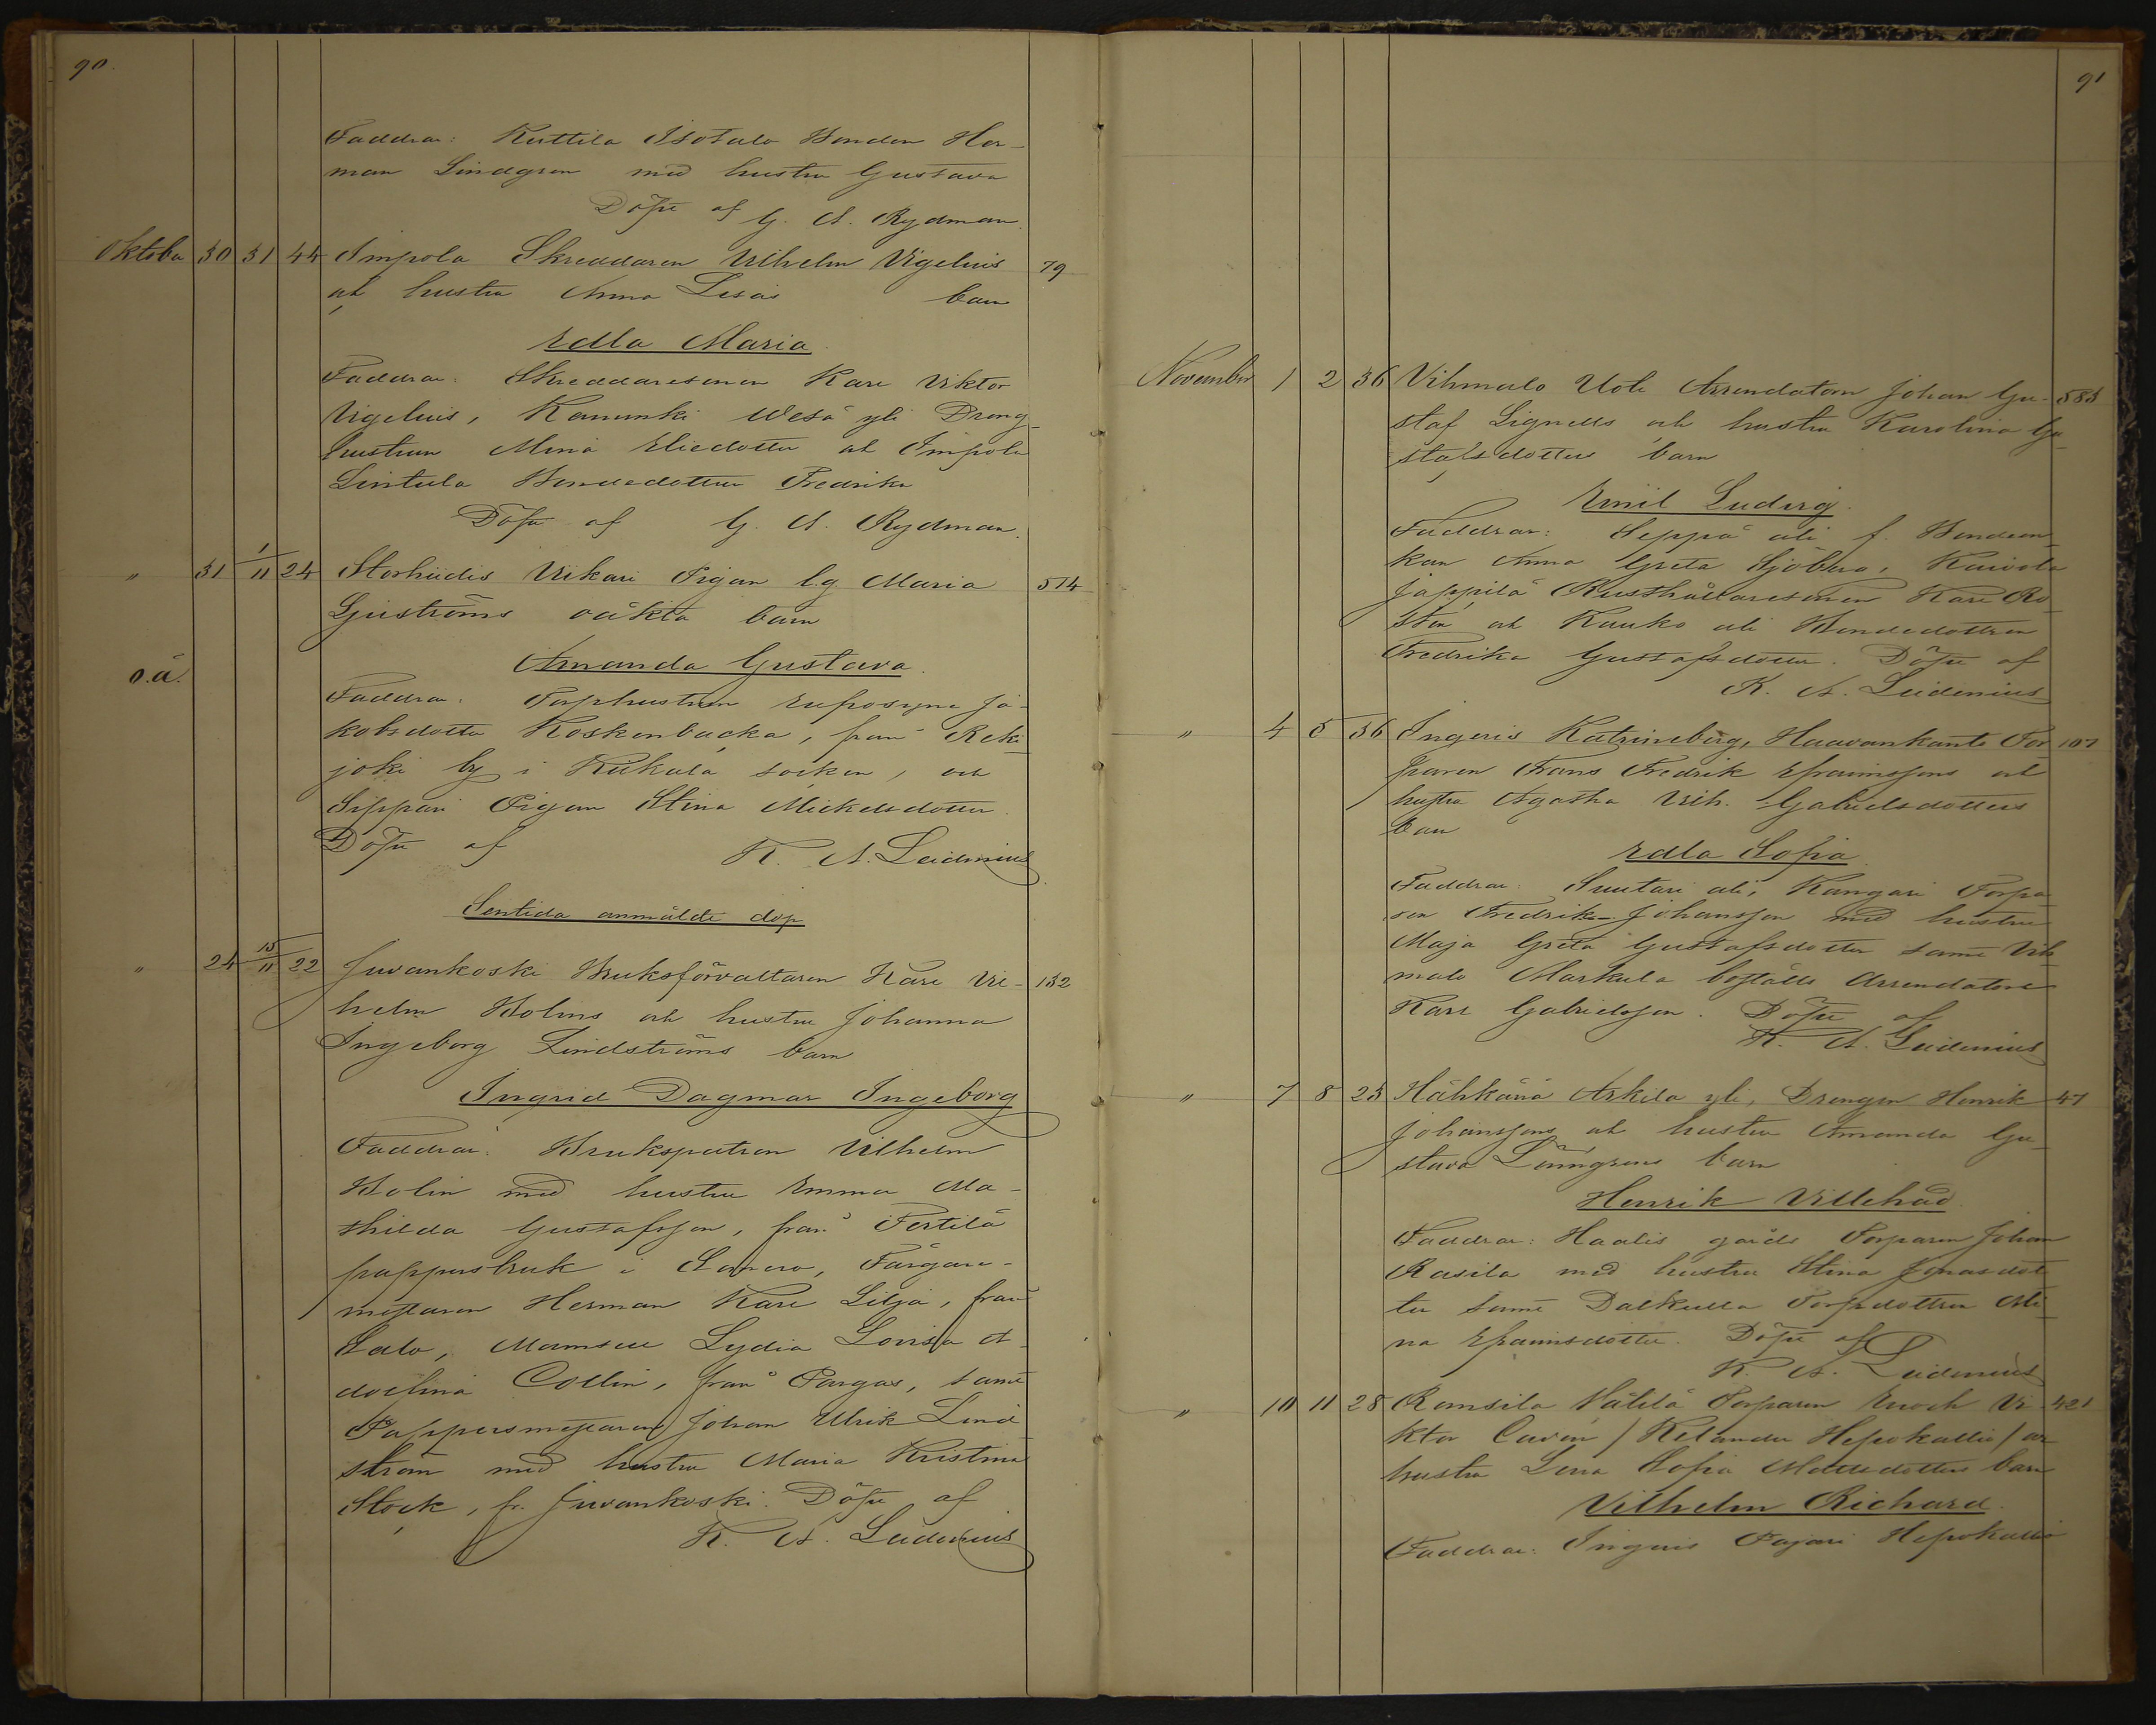 90.
Faddrar: Kuttila Isotalo Bonden Her-
man Lindgren med hustru Gustava
Döpt af G. A. Rydman.
Oktober 30 31 44 Impola Skreddaren Vilhelm Vigelius 79
och hustru Anna Lisas barn
Edla Maria
Faddrar: Skreddaresonen Karl Viktor
Vigelius, Kanunki Wesä yli Dreng-
hustrun Mina Eliedotter och Impola
Lintula Bondedottren Fredrika
Döpt af G. A. Rydman.
" 31 1/11 24 Storhiidis Vikari Pigan l.g. Maria 514
Ljuströms oäkta barn
o.ä.
Amanda Gustava.
Faddrar: Torphustrun Eufrosyne Ja-
kobsdotter Koskenbacka, från Reki
joki by i Kiikala socken, och
Sippari Pigan Stina Mickelsdotter.
Döpt af K. A. Leidenius.
Sentida anmälde dop
" 24 15/11 22 Juvankoski Bruksförvaltaren Karl Vil- 132
helm Bolins och hustru Johanna
Ingeborg Lindströms barn
Ingrid Dagmar Ingeborg
Faddrar: Brukspatron Vilhelm
Bolin med hustru Emma Ma-
thilda Gustafsson, från Pertilä
pappersbruk i Somero, Färgare-
mästaren Herman Karl Lilja, från
Salo, Mamsell Lydia Lovisa A-
dolfina Collin, från Pargas, samt
Pappersmästaren Johan Ulrik Lind
ström med hustru Maria Kristina
Stock, fr. Juvankoski. Döpt af
K. A. Leidenius
91
November 1 2 36 Vihmalo Uoti Arrendatorn Johan Gu- 583
staf Lignells och hustru Karolina Gu
stafsdotters barn
Emil Ludvig.
Faddrar: Seppä ali f. Bondeen-
kan Anna Greta Sjöberg, Kaivola
Jäppilä Rusthållaresonen Karl Ro-
stén och Kauko ali Bondedottren
Fredrika Gustafsdotter. Döpt af
K. A. Leidenius
" 4 5 36 Ingeris Katrineberg, Haavankanto Tor 107
paren Frans Fredrik Efraimssons och
hustru Agatha Vilh. Gabrielsdotters
barn
Edla Sofia
Faddrar: Suutari ali, Kangari Torpa
ren Fredrik Johansson med hustru
Maja Greta Gustafsdotter samt Vih
malo Markula boställs Arrendatorn
Karl Gabrielsson. Döpt af
K. A. Leidenius
" 7 8 23 Hähkänä Arkila yli, Drengen Henrik 47
Johanssons och hustru Amanda Gu-
stava Lönngrens barn
Henrik Villehad.
Faddrar: Haalis gårds Torparen Johan
Rasila med hustru Stina Jonasdot
ter samt Dalkulla Torpdottren Mi
na Efraimsdotter. Döpt af
K. A. Leidenius
" 10 11 28 Romsila Välilä Torparen Enoch Vi- 421
ktor Cavén / Ketunda Hepokallio / och
hustru Lena Sofia Mattsdotters barn
Vilhelm Richard.
Faddrar: Ingeris Pajari Hepokallio